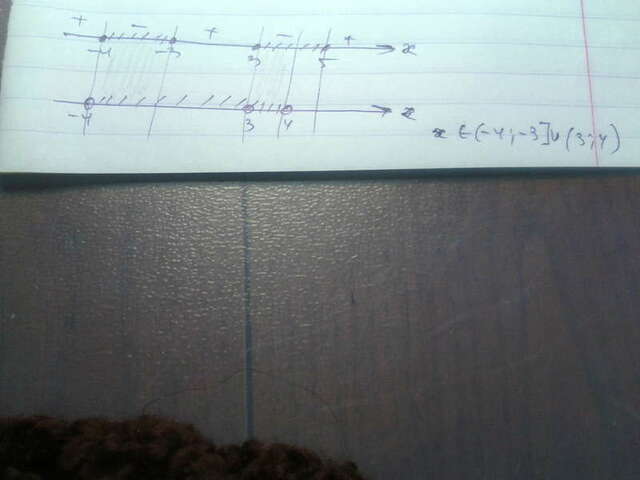 + - + - +
-4 -3 3 5 x
-4 3 4 x
x ∈ (-4; -3] ∪ (3; 4)